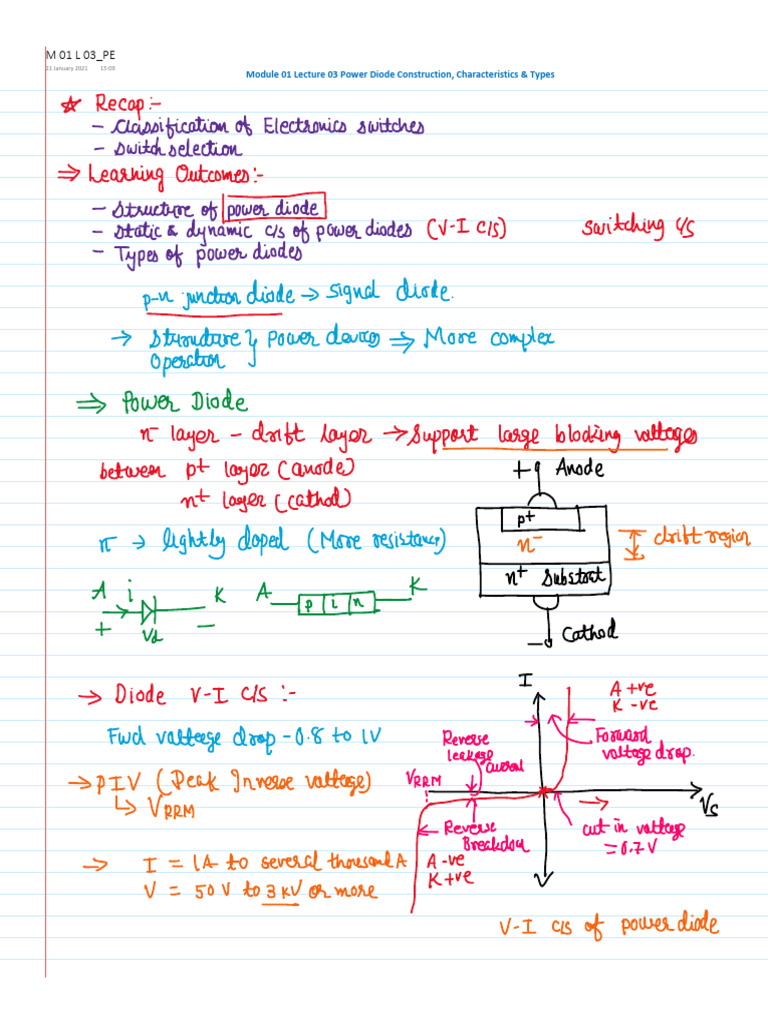 M 01 L 03_PE
21 January 2021 15:09
Module 01 Lecture 03 Power Diode Construction, Characteristics & Types
☆ Recap:-
- Classification of Electronics switches
- Switch selection
⇒ Learning Outcomes:-
- Structure of power diode
- Static & dynamic c/s of power diodes (V-I c/s) Switching c/s
- Types of power diodes
p-n junction diode → signal diode.
→ Structure } power devices ⇒ More complex
Operation
⇒ Power Diode
n⁻ layer - drift layer → Support large blocking voltages
between p+ layer (anode)
n+ layer (cathod)
+ Anode
p+
n⁻
drift region
n+ Substrat
- Cathod
n → lightly doped (More resistance)
A i K
+ Vd -
A p i n K
→ Diode V-I c/s :-
Fwd voltage drop - 0.8 to 1V
→ PIV (Peak Inverse voltage)
↳ VRRM
→ I = 1A to several thousand A
V = 50 V to 3 kV or more
I
A +ve
K -ve
Forward
voltage drop.
Reverse
leakage
current
VRRM
Vs
Reverse
Breakdown
cut in voltage
= 0.7 V
A -ve
K +ve
V-I c/s of power diode